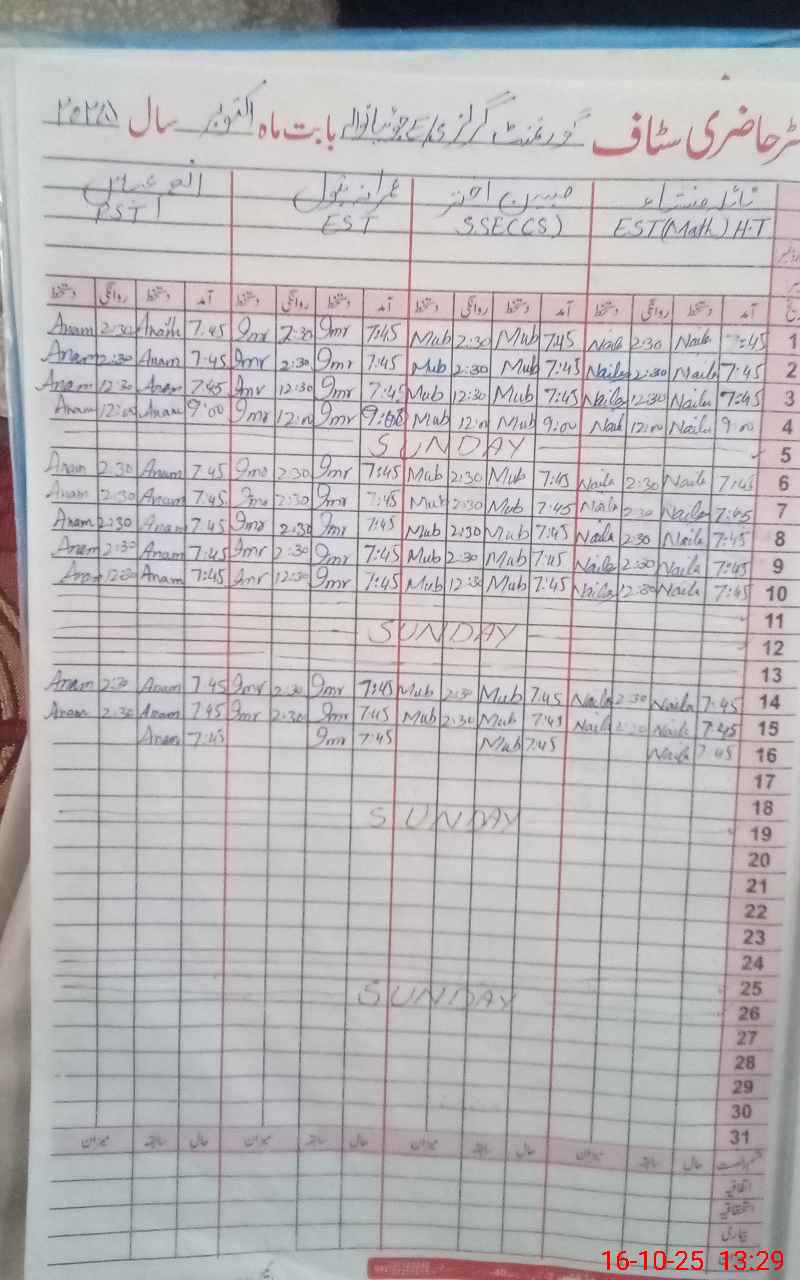 رجسٹر حاضری سٹاف گورنمنٹ گرلز بابت ماہ اکتوبر سال
PST EST SSE(CS) EST(Math) H.T
دستخط روانگی دستخط آمد دستخط روانگی دستخط آمد دستخط روانگی دستخط آمد دستخط روانگی دستخط آمد
Anam 2:30 Anam 7:45 Imr 2:30 Imr 7:45 Mub 2:30 Mub 7:45 Naila 2:30 Naila 7:45 1
Anam 2:30 Anam 7:45 Imr 2:30 Imr 7:45 Mub 2:30 Mub 7:45 Naila 2:30 Naila 7:45 2
Anam 12:30 Anam 7:45 Imr 12:30 Imr 7:45 Mub 12:30 Mub 7:45 Naila 12:30 Naila 7:45 3
Anam 12:00 Anam 9:00 Imr 12:00 Imr 9:00 Mub 12:00 Mub 9:00 Naila 12:00 Naila 9:00 4
SUNDAY 5
Anam 2:30 Anam 7:45 Imr 2:30 Imr 7:45 Mub 2:30 Mub 7:45 Naila 2:30 Naila 7:45 6
Anam 2:30 Anam 7:45 Imr 2:30 Imr 7:45 Mub 2:30 Mub 7:45 Naila 2:30 Naila 7:45 7
Anam 2:30 Anam 7:45 Imr 2:30 Imr 7:45 Mub 2:30 Mub 7:45 Naila 2:30 Naila 7:45 8
Anam 2:30 Anam 7:45 Imr 2:30 Imr 7:45 Mub 2:30 Mub 7:45 Naila 2:30 Naila 7:45 9
Anam 12:30 Anam 7:45 Imr 12:30 Imr 7:45 Mub 12:30 Mub 7:45 Naila 12:30 Naila 7:45 10
11
SUNDAY 12
13
Anam 2:30 Anam 7:45 Imr 2:30 Imr 7:45 Mub 2:30 Mub 7:45 Naila 2:30 Naila 7:45 14
Anam 2:30 Anam 7:45 Imr 2:30 Imr 7:45 Mub 2:30 Mub 7:45 Naila 2:30 Naila 7:45 15
Anam 7:45 Imr 7:45 Mub 7:45 Naila 7:45 16
17
18
SUNDAY 19
20
21
22
23
24
25
SUNDAY 26
27
28
29
30
31
میزان سابقہ حال میزان سابقہ حال میزان سابقہ حال میزان سابقہ حال
اتفاقیہ
استحقاقیہ
بیماری
16-10-25 13:29